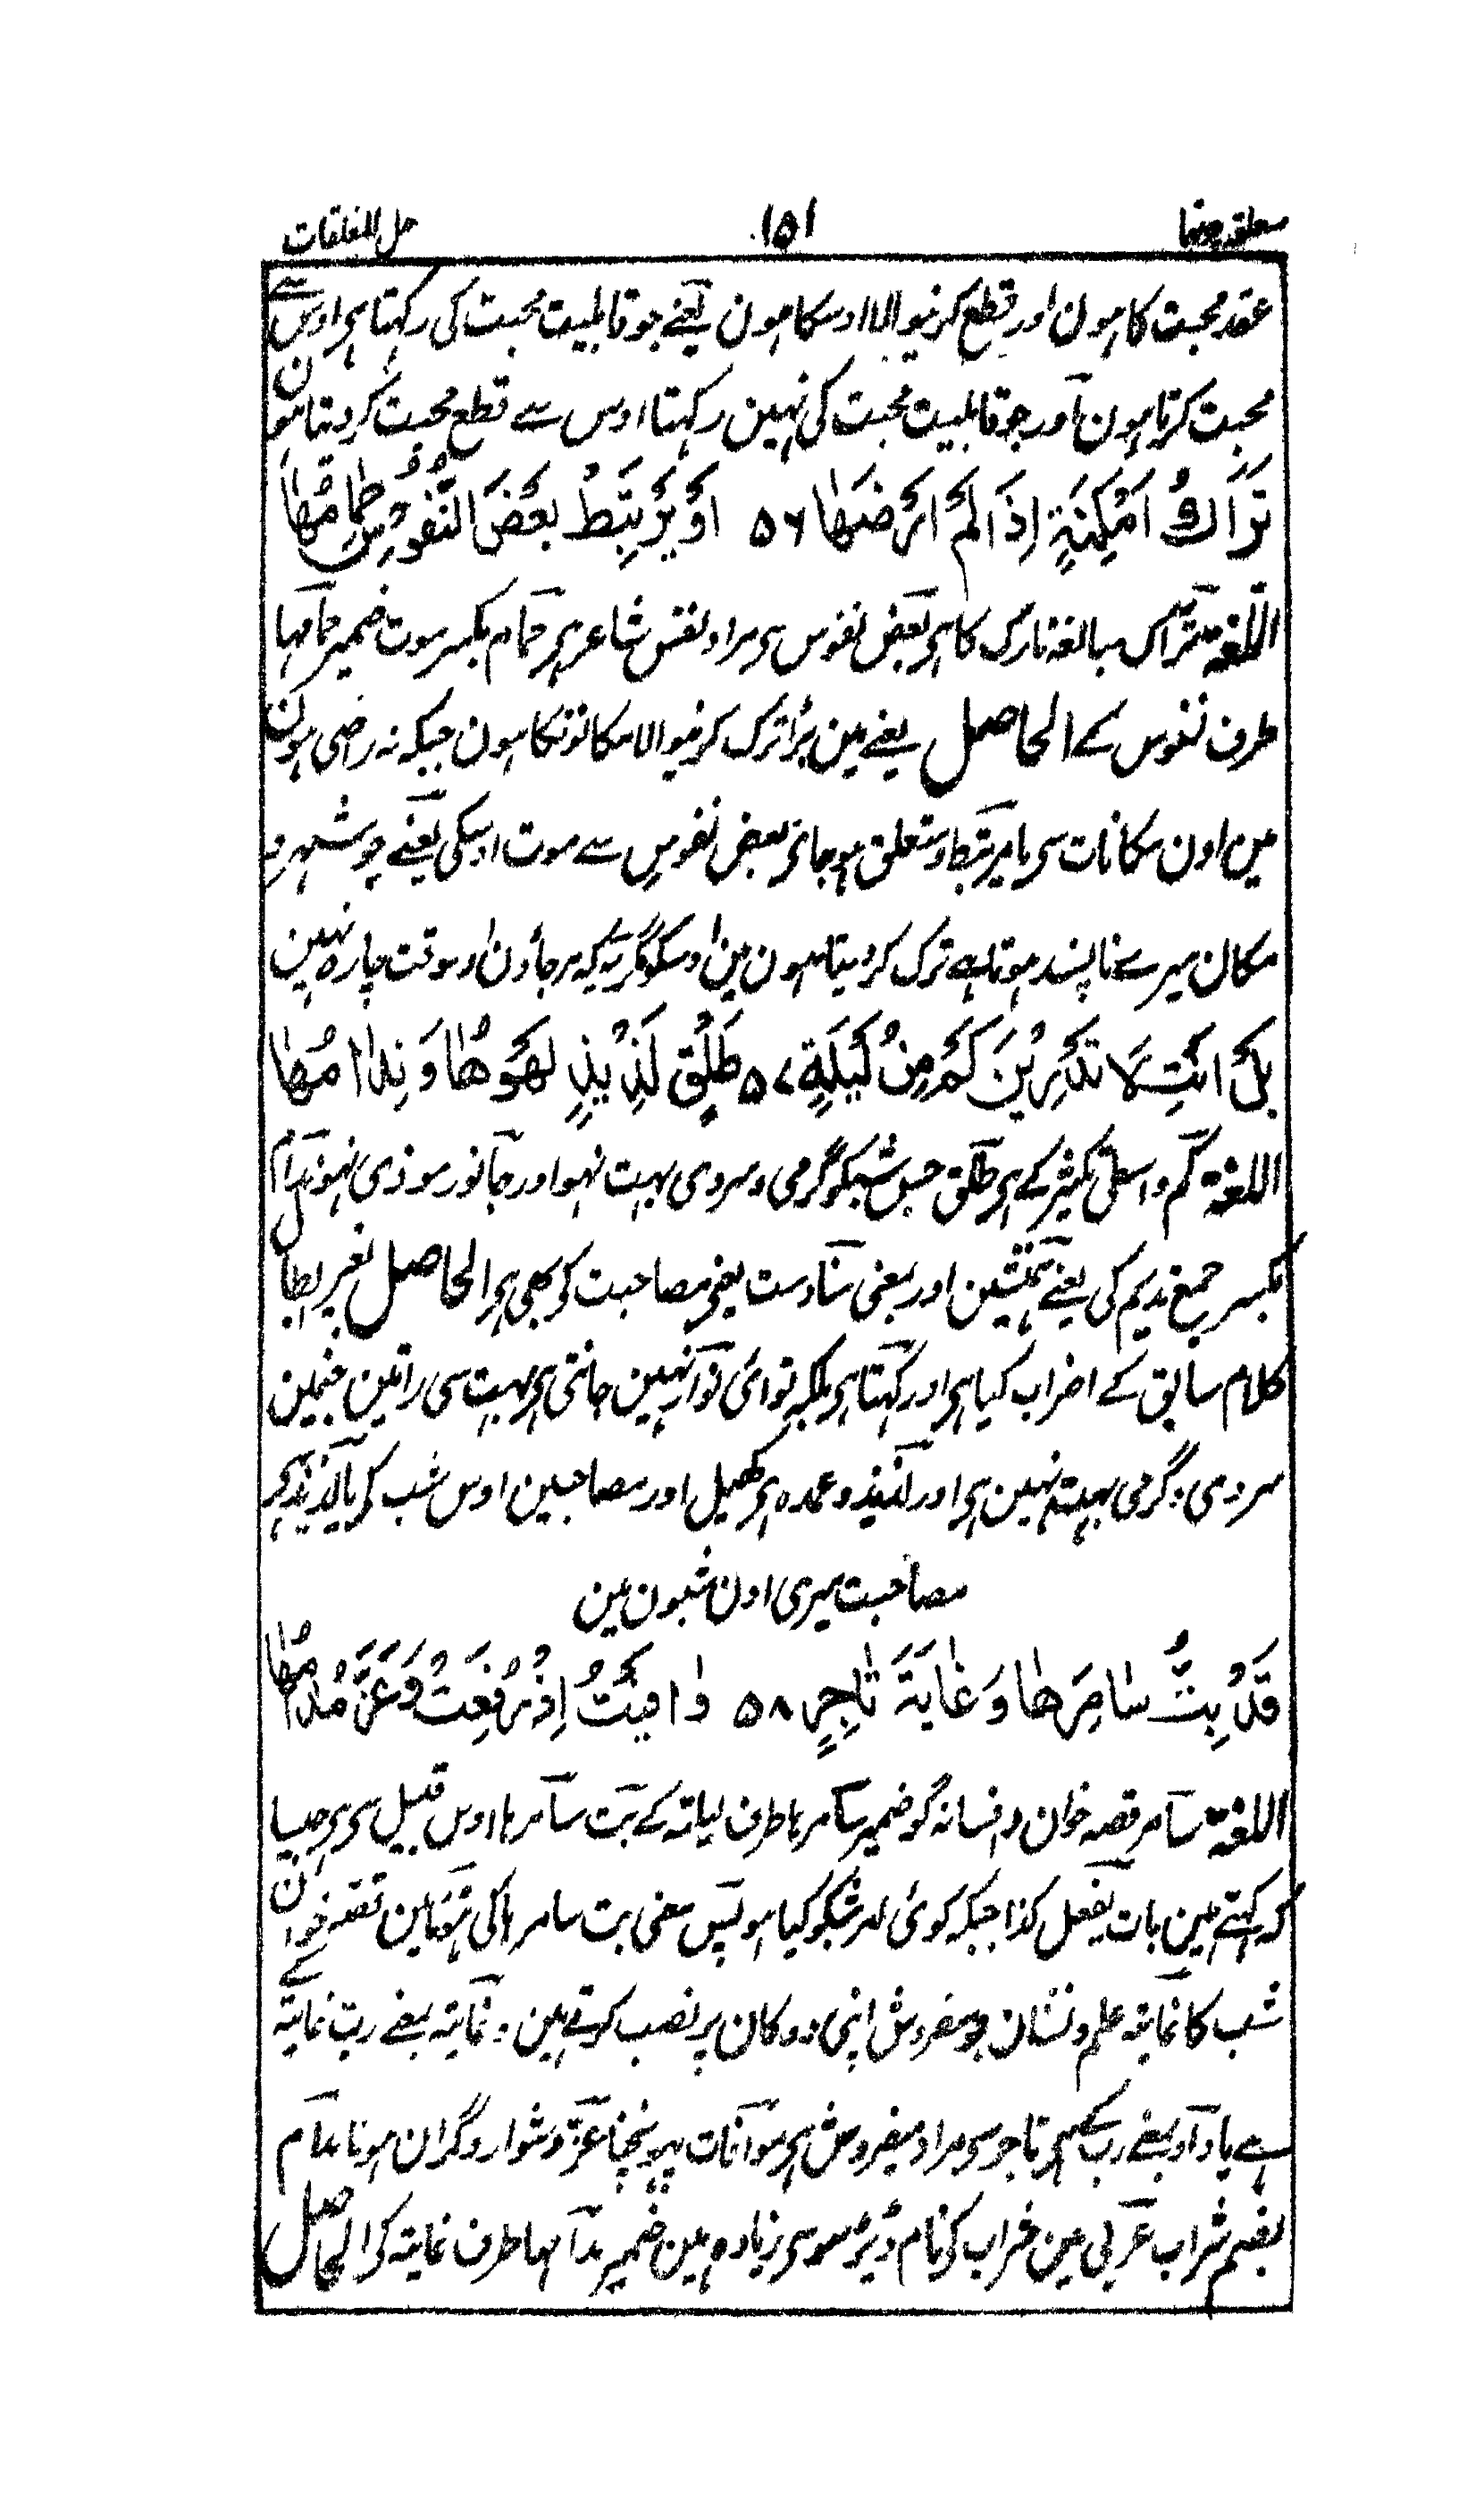 حل المغلقات
۱۵۱
معلقہ
عقد محبت کا ہون اور قطع کرنیوالا اوسکا ہون یعنے جو قابلیت محبت کی رکہتا ہی اوس سے
محبت کرتا ہون اور جو قابلیت محبت کی نہین رکہتا اوس سے قطع محبت کر دیتا ہون
تَرَّاكُ اَمْكِنَةٍ اِذَا لَمْ اَرْضَهَا ۵۶ اَوْ يَرْتَبِطْ بَعْضَ النُّفُوْسِ حِمَامُهَا
اللغة تراک مبالغہ تارک کا ہی بعض نفوس سے مراد نفس شاعر ہی حمام بکسر موت ضمیر حمامہا
طرف نفوس کے الحاصل یعنے مین بڑا ترک کرنیوالا مکانونکا ہون جبکہ نہ راضی ہون
مین اون مکانات سی یا مرتبط و متعلق ہو جائی بعض نفوس سے موت اوسکی یعنے جو شہر و
مکان میرے ناپسند ہوتا ہے ترک کر دیتا ہون مین اوسکو مگر یہ کہ مر جاؤن اوسوقت چارہ نہین
بَلْ اَنْتِ لَا تَدْرِيْنَ كَمْ مِنْ لَيْلَةٍ ۵۷ طَلْقٍ لَذِيْذٍ لَهْوُهَا وَنِدَامُهَا
اللغة کم واسطی تکثیر کے ہی طلق جس شبکو گرمی و سردی بہت نہو اور جانور موذی نہو ندام
بکسر جمع ندیم کی یعنے ہمنشین اور بمعنی منادمت یعنی مصاحبت کی بھی ہی الحاصل بغیر ابطال
کلام سابق کے اضراب کیا ہی اور کہتا ہی بلکہ تو ائی نوار نہین جانتی ہی بہت سی راتین جنمین
سردی و گرمی بہت نہین ہی اور لذیذ و عمدہ ہی کھیل اور مصاحبین اوس شب کی یا لذیذ ہی
مصاحبت میری اون شبون مین
قَدْ بِتُّ سَامِرَهَا وَغَايَةَ تَاجِرٍ ۵۸ وَافَيْتُ اِذْ رُفِعَتْ وَعَزَّ مُدَامُهَا
اللغة سامر قصہ خوان و افسانہ گو ضمیر سامرہا طرف لیلتہ کے بت سامرہا اوس قبیل سی ہی جیسا
کہ کہتے ہین بات یفعل کذا جبکہ کوئی امر شبکو کیا ہو پس معنی بت سامرہا کی تھا مین قصہ خوان
شب کا غایتہ علم و نشان جو میفروش اپنی دوکان پر نصب کرتے ہین و غایتہ بمعنے رب غایتہ
ہے یا واو بمعنے رب کے ہی تاجر سے مراد میفروش ہی موافات پہونچنا عز دشوار و گران ہونا مدام
بضم شراب عربی مین شراب کی نام ڈیڑھ سو سی زیادہ ہین ضمیر مدامہا طرف غایتہ کی الحاصل